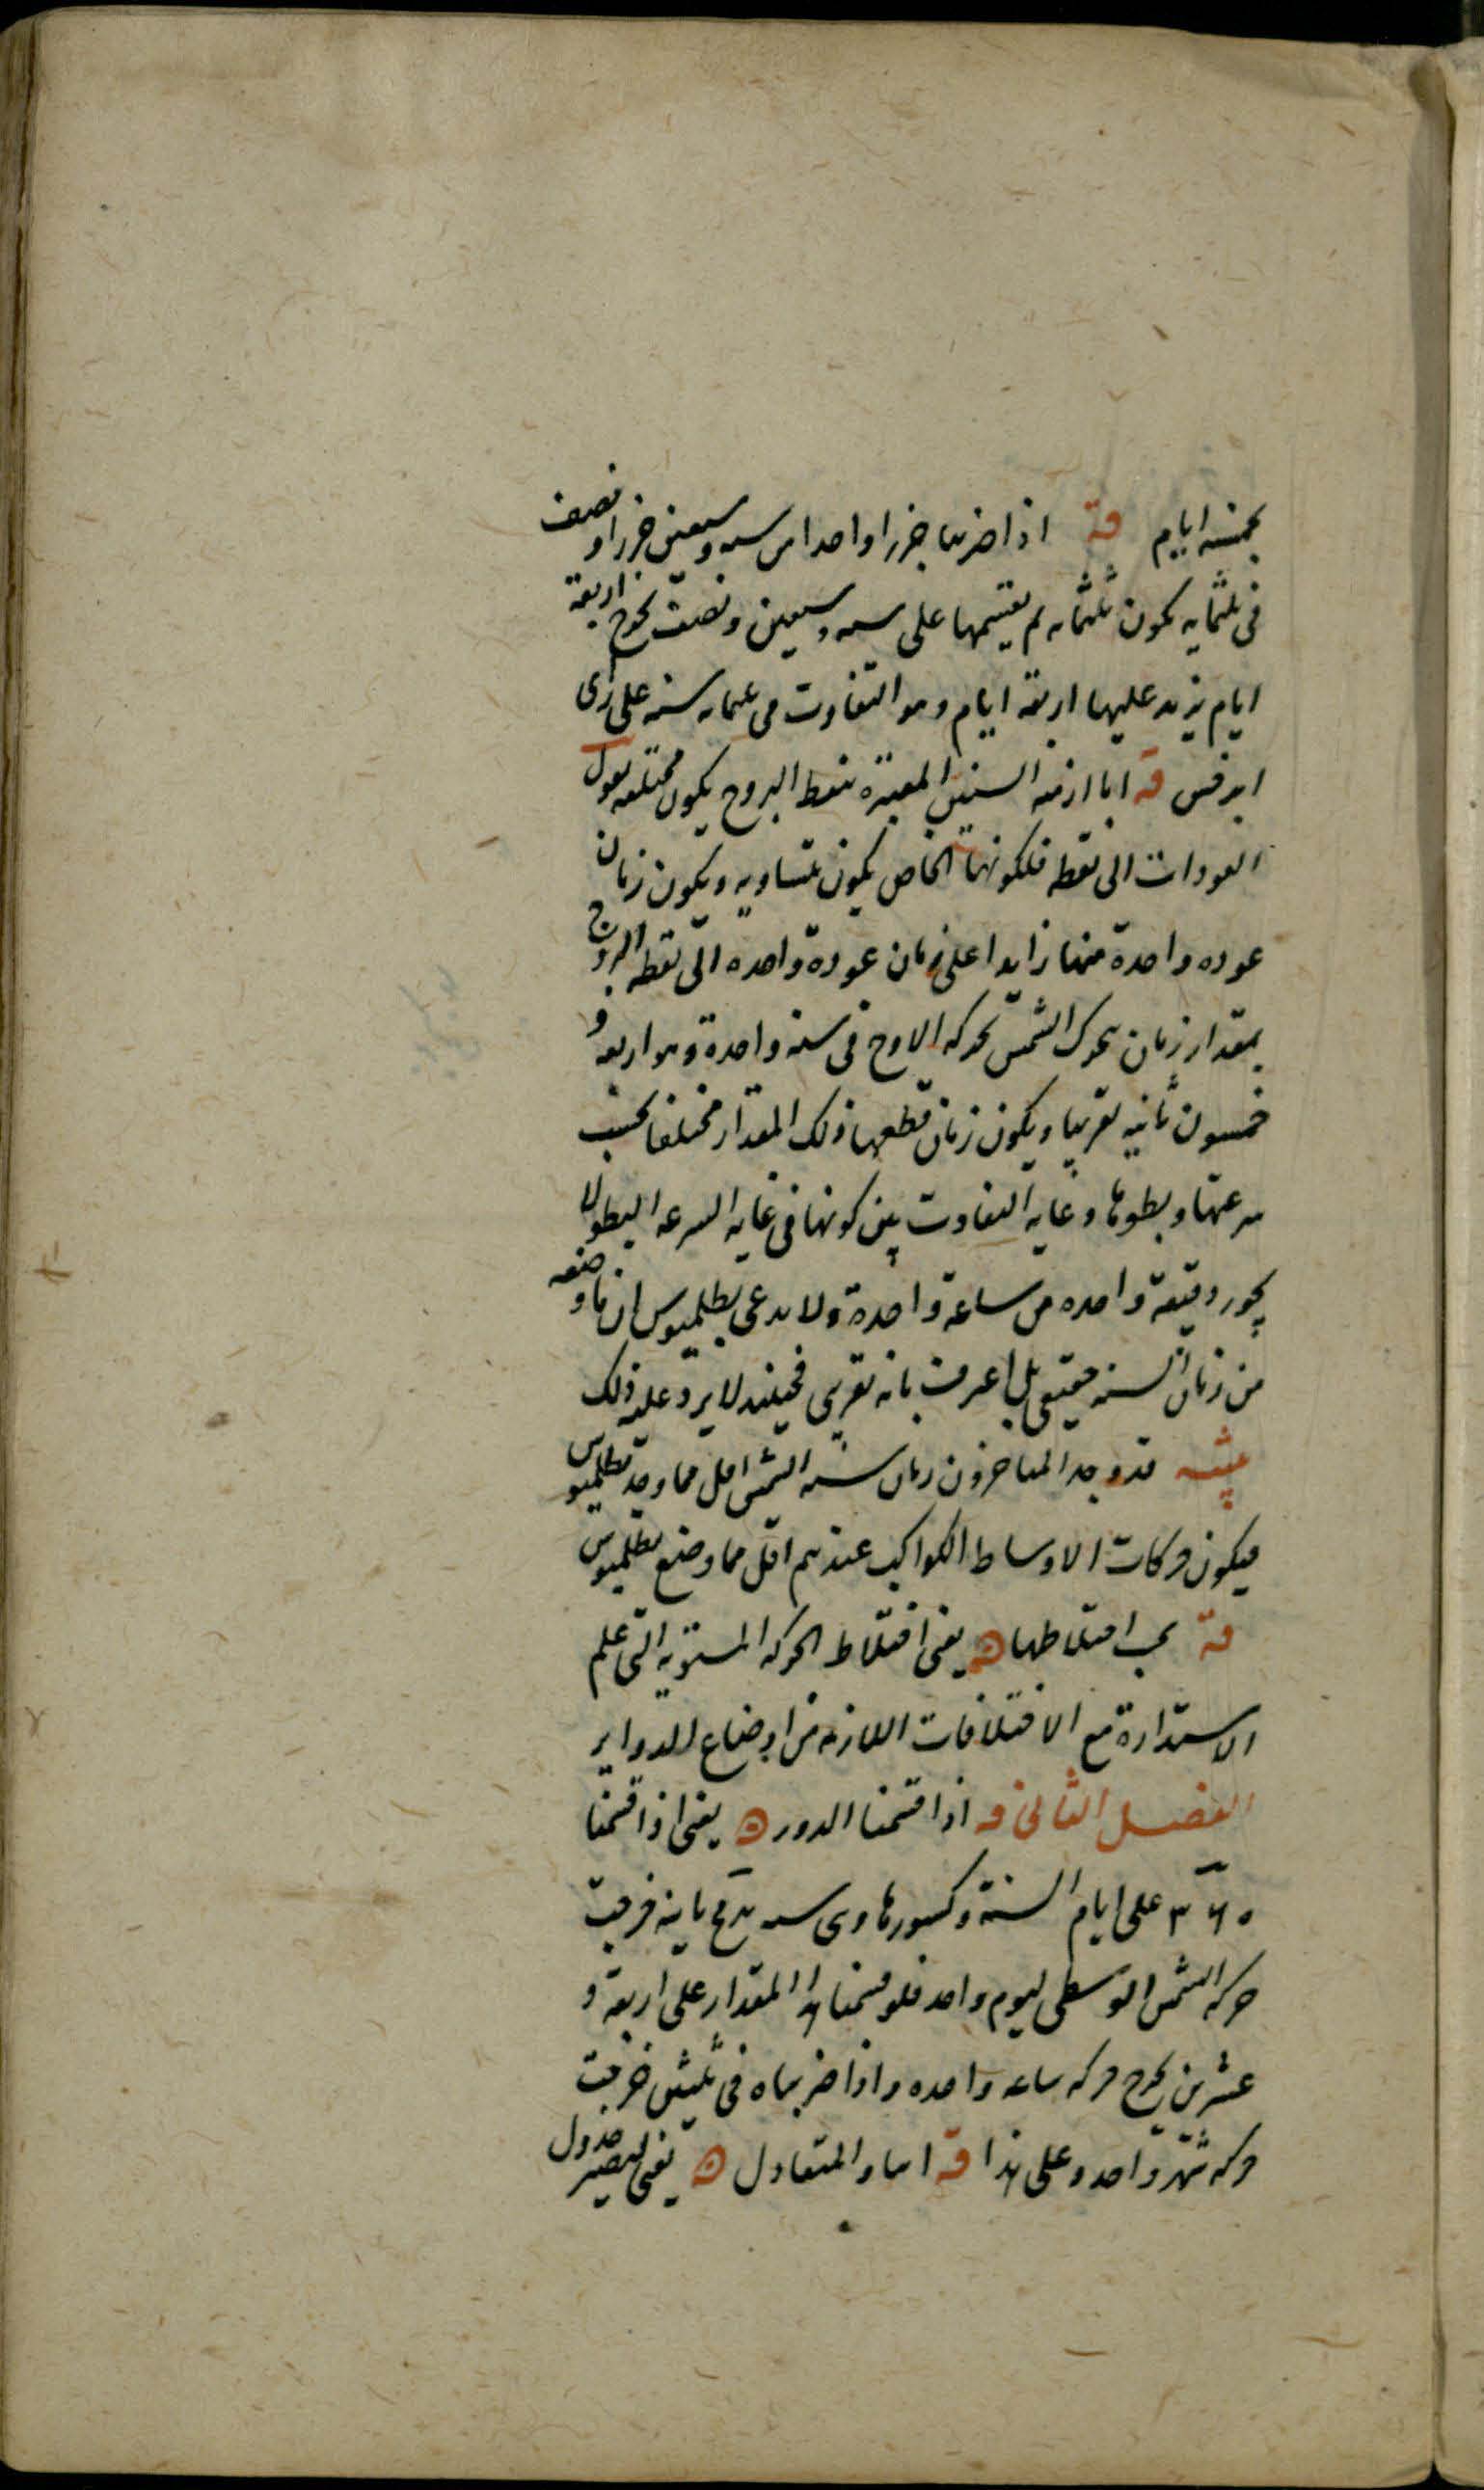 بخمسة ايام قه اذا ضربنا جزءا واحدا من سبعة وسبعين جزءا و نصف
فى ثلثمايه يكون ثلثمايه ثم نقسمها على سبعه وسبعين ونصف يخرج اربعة
ايام يزيد عليها اربعة ايام وهو التفاوت فى ثلثمايه سنه على راى
ابرخس قه اما ازمنه السنين المعتبرة بنقط البروج يكون مختلفه نقول
العودات الى نقطه فلكها الخاص يكون متساويه ويكون زمان
عوده واحدة منها زايدا على زمان عودة واحده الى نقطه البروج
بمقدار زمان تحرك الشمس بحركه الاوج فى سنه واحدة وهو اربعه و
خمسون ثانيه تقريبا ويكون زمان قطعها ذلك المقدار مختلفا بحسب
سرعتها وبطوها وغايه التفاوت بين كونها فى غايه السرعه والبطو لا
يجوز دقيقة واحده من ساعة واحدة ولا يدعى بطلميوس ان ما وضعه
من زمان السنه حقيقى بل اعرف بانه تقريبى فحينئذ لا يرد عليه ذلك
قد وجد المتاخرون زمان سنه الشمس اقل مما وجد بطلميوس
فيكون حركات الاوساط الكواكب عندهم اقل مما وضع بطلميوس
قه يجب اختلاطها ه يعنى اختلاط الحركه المستويه التى على
الاستدارة مع الاختلافات اللازمه من اوضاع الدواير
الفصل الثانى قه اذا قسمنا الدور ه يعنى اذا قسمنا
٣٦٠ على ايام السنة وكسورها وهى شسه يد مح ثانيه خرجت
حركه الشمس الوسطى ليوم واحد فلو قسمنا هذا المقدار على اربعة و
عشرين يخرج حركه ساعه واحده واذا ضربناه فى ثلثين خرجت
حركه شهر واحد وعلى هذا قه المتعادل ه يعنى ليصير جدول